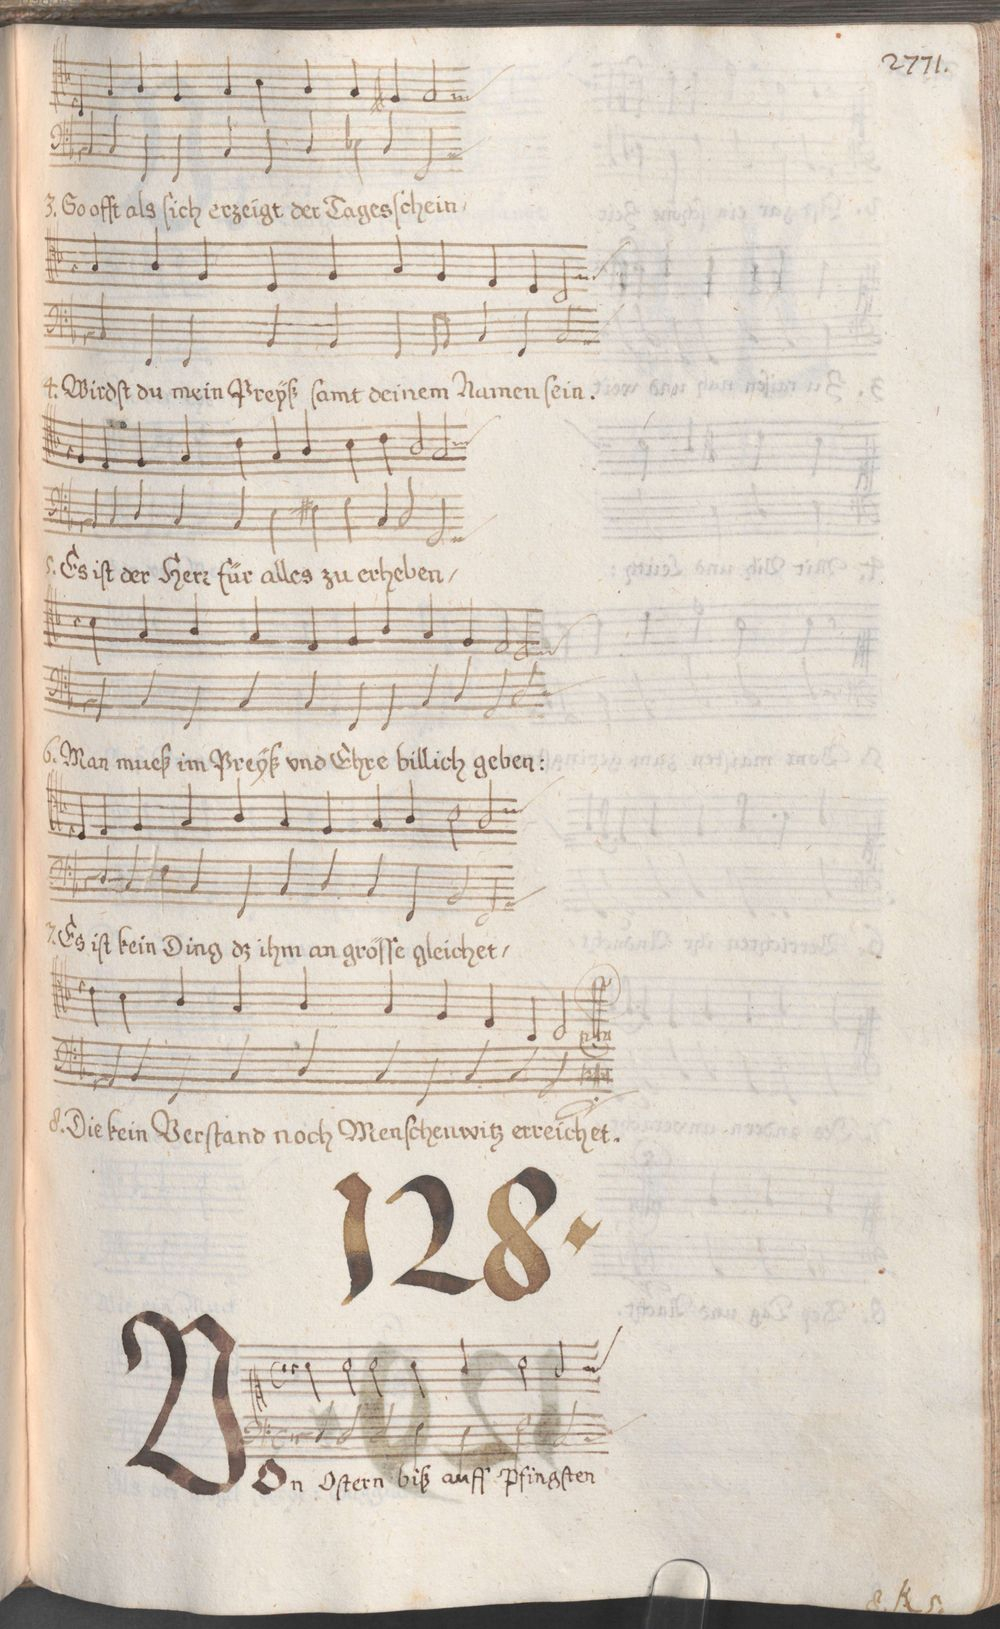 2771.
3. So offt als sich erzeigt der Tagesschein,
4. Wirdst du mein Preyß samt deinem Namen sein.
5. Es ist der Herr für alles zu erheben,
6. Man mueß im Preyß vnd Ehre billich geben:
7. Es ist kein Ding dz ihm an grösse gleichet,
8. Die kein Verstand noch Menschenwitz erreichet.
128.
VOn Ostern biß auff Pfingsten